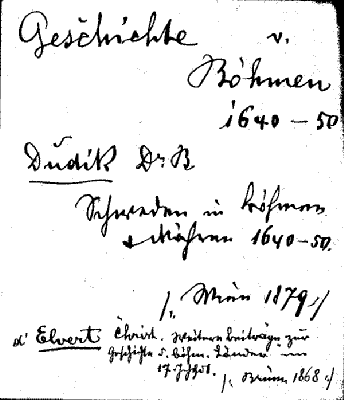 Geschichte v.
Böhmen
1640-50
Dudik Dr. B
Schweden in Böhmen
& Mähren 1640-50.
/: Wien 1879 :/
d'Elvert Christ. Weitere Beiträge zur
Geschichte d. böhm. Länder im
17. Jhdt.
/: Brünn 1868 :/